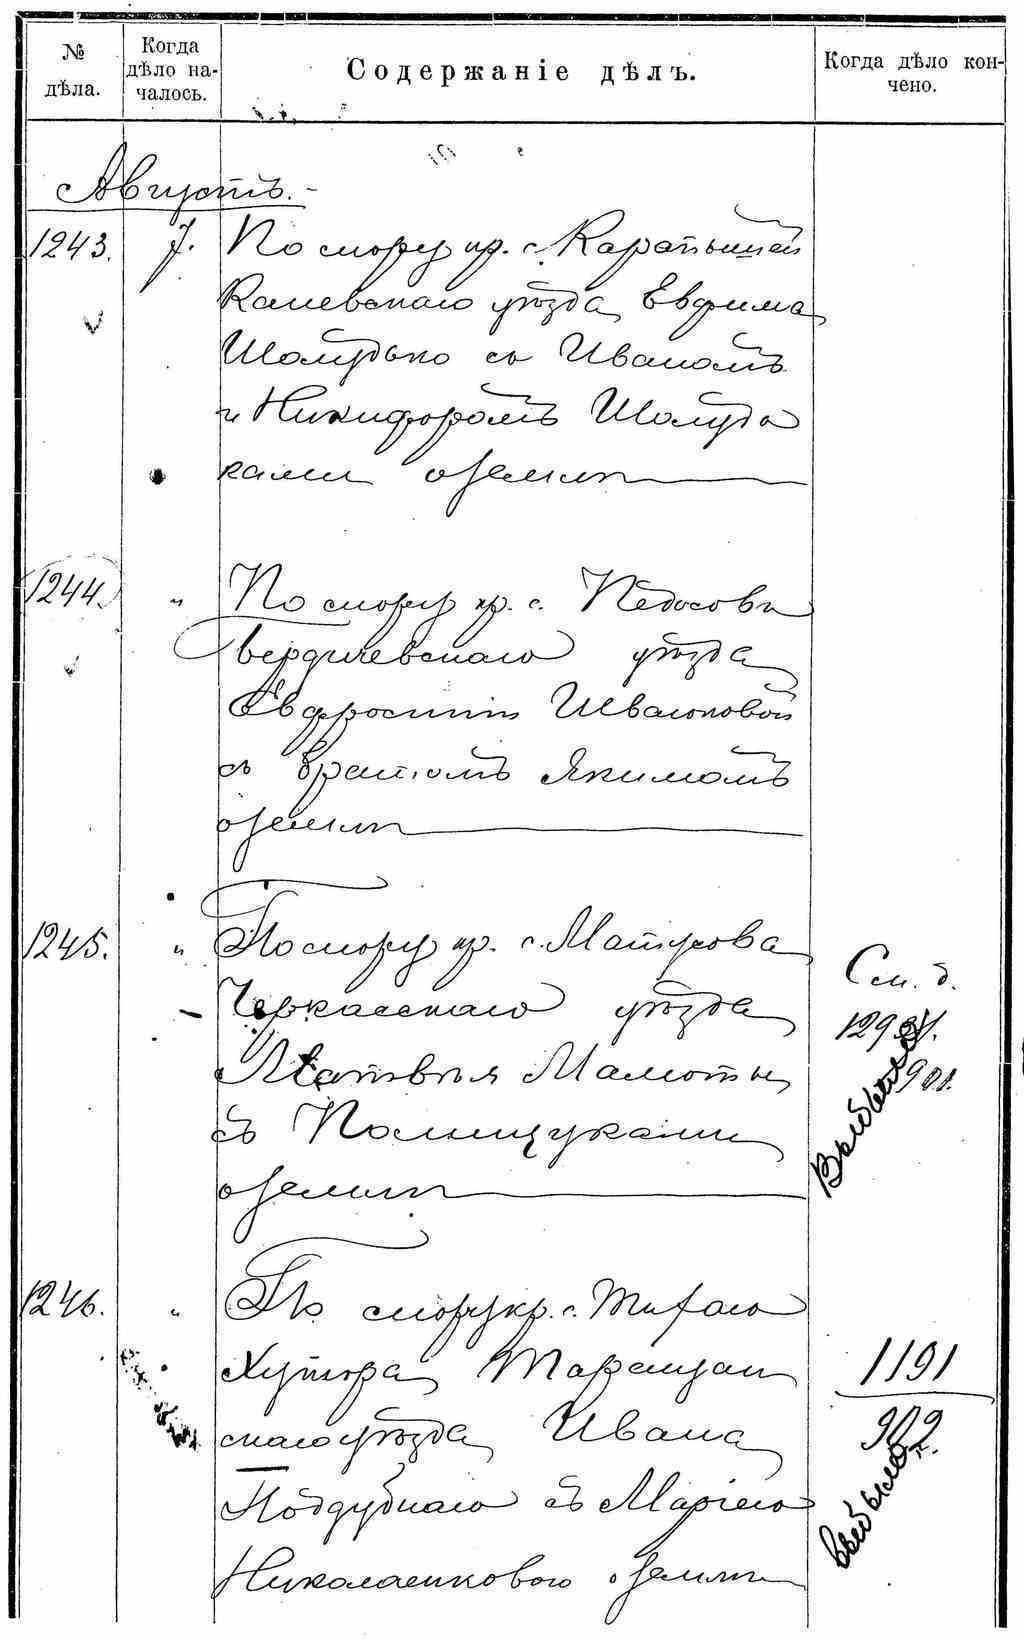 № дѣла.
Когда дѣло на-
чалось.
Содержаніе дѣлъ.
Когда дѣло кон-
чено.
Августъ.
1243. 7. По спору кр. с. Карапышей
Каневскаго уѣзда Евфима
Шолудько съ Иваномъ
и Никифоромъ Шолудь
ками о землѣ
1244. " По спору кр. с.
Бердичевскаго уѣзда
Евфросиніи Ивасюковой
съ братомъ Якимомъ
о землѣ
1245. " По спору кр. с. Матусова
Черкасскаго уѣзда
Матвѣя Мамоты
съ Полищуками
о землѣ
См. д.
901.
Выбыло
1246. " По спору кр. с. Тихаго
Хутора Таращан
скаго уѣзда Ивана
Поддубнаго съ Маріею
Николаенковою о землѣ
1191
902 г.
выбыло